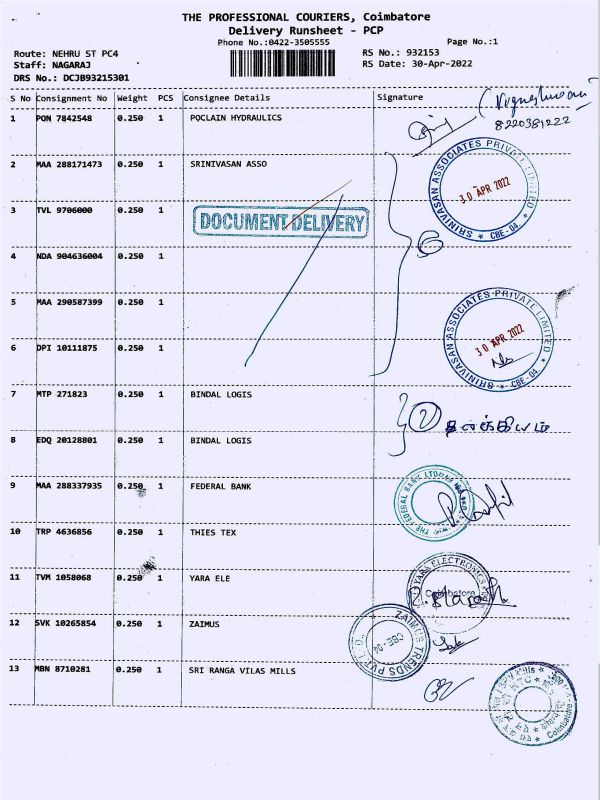 THE PROFESSIONAL COURIERS, Coimbatore
Delivery Runsheet - PCP
Phone No.:0422-3505555
Page No.:1
Route: NEHRU ST PC4
RS No.: 932153
Staff: NAGARAJ
RS Date: 30-Apr-2022
DRS No.: DCJB93215301
S No Consignment No Weight PCS Consignee Details Signature
8220381222
1 PON 7842548 0.250 1 POCLAIN HYDRAULICS
2 MAA 288171473 0.250 1 SRINIVASAN ASSO
SRINIVASAN ASSOCIATES PRIVATE LIMITED
30 APR 2022
* CBE-04. *
3 TVL 9706000 0.250 1
DOCUMENT DELIVERY
6
4 NDA 904636004 0.250 1
5 MAA 290587399 0.250 1
SRINIVASAN ASSOCIATES PRIVATE LIMITED
30 APR 2022
* CBE-04. *
6 DPI 10111875 0.250 1
7 MTP 271823 0.250 1 BINDAL LOGIS
2
8 EDQ 20128801 0.250 1 BINDAL LOGIS
9 MAA 288337935 0.250 1 FEDERAL BANK
THE FEDERAL BANK LTD
10 TRP 4636856 0.250 1 THIES TEX
11 TVM 1058068 0.250 1 YARA ELE
YARA ELECTRONICS
Coimbatore
12 SVK 10265854 0.250 1 ZAIMUS
ZAIMUS TRENDS PVT LTD.
CBE-04
13 MBN 8710281 0.250 1 SRI RANGA VILAS MILLS
Coimbatore